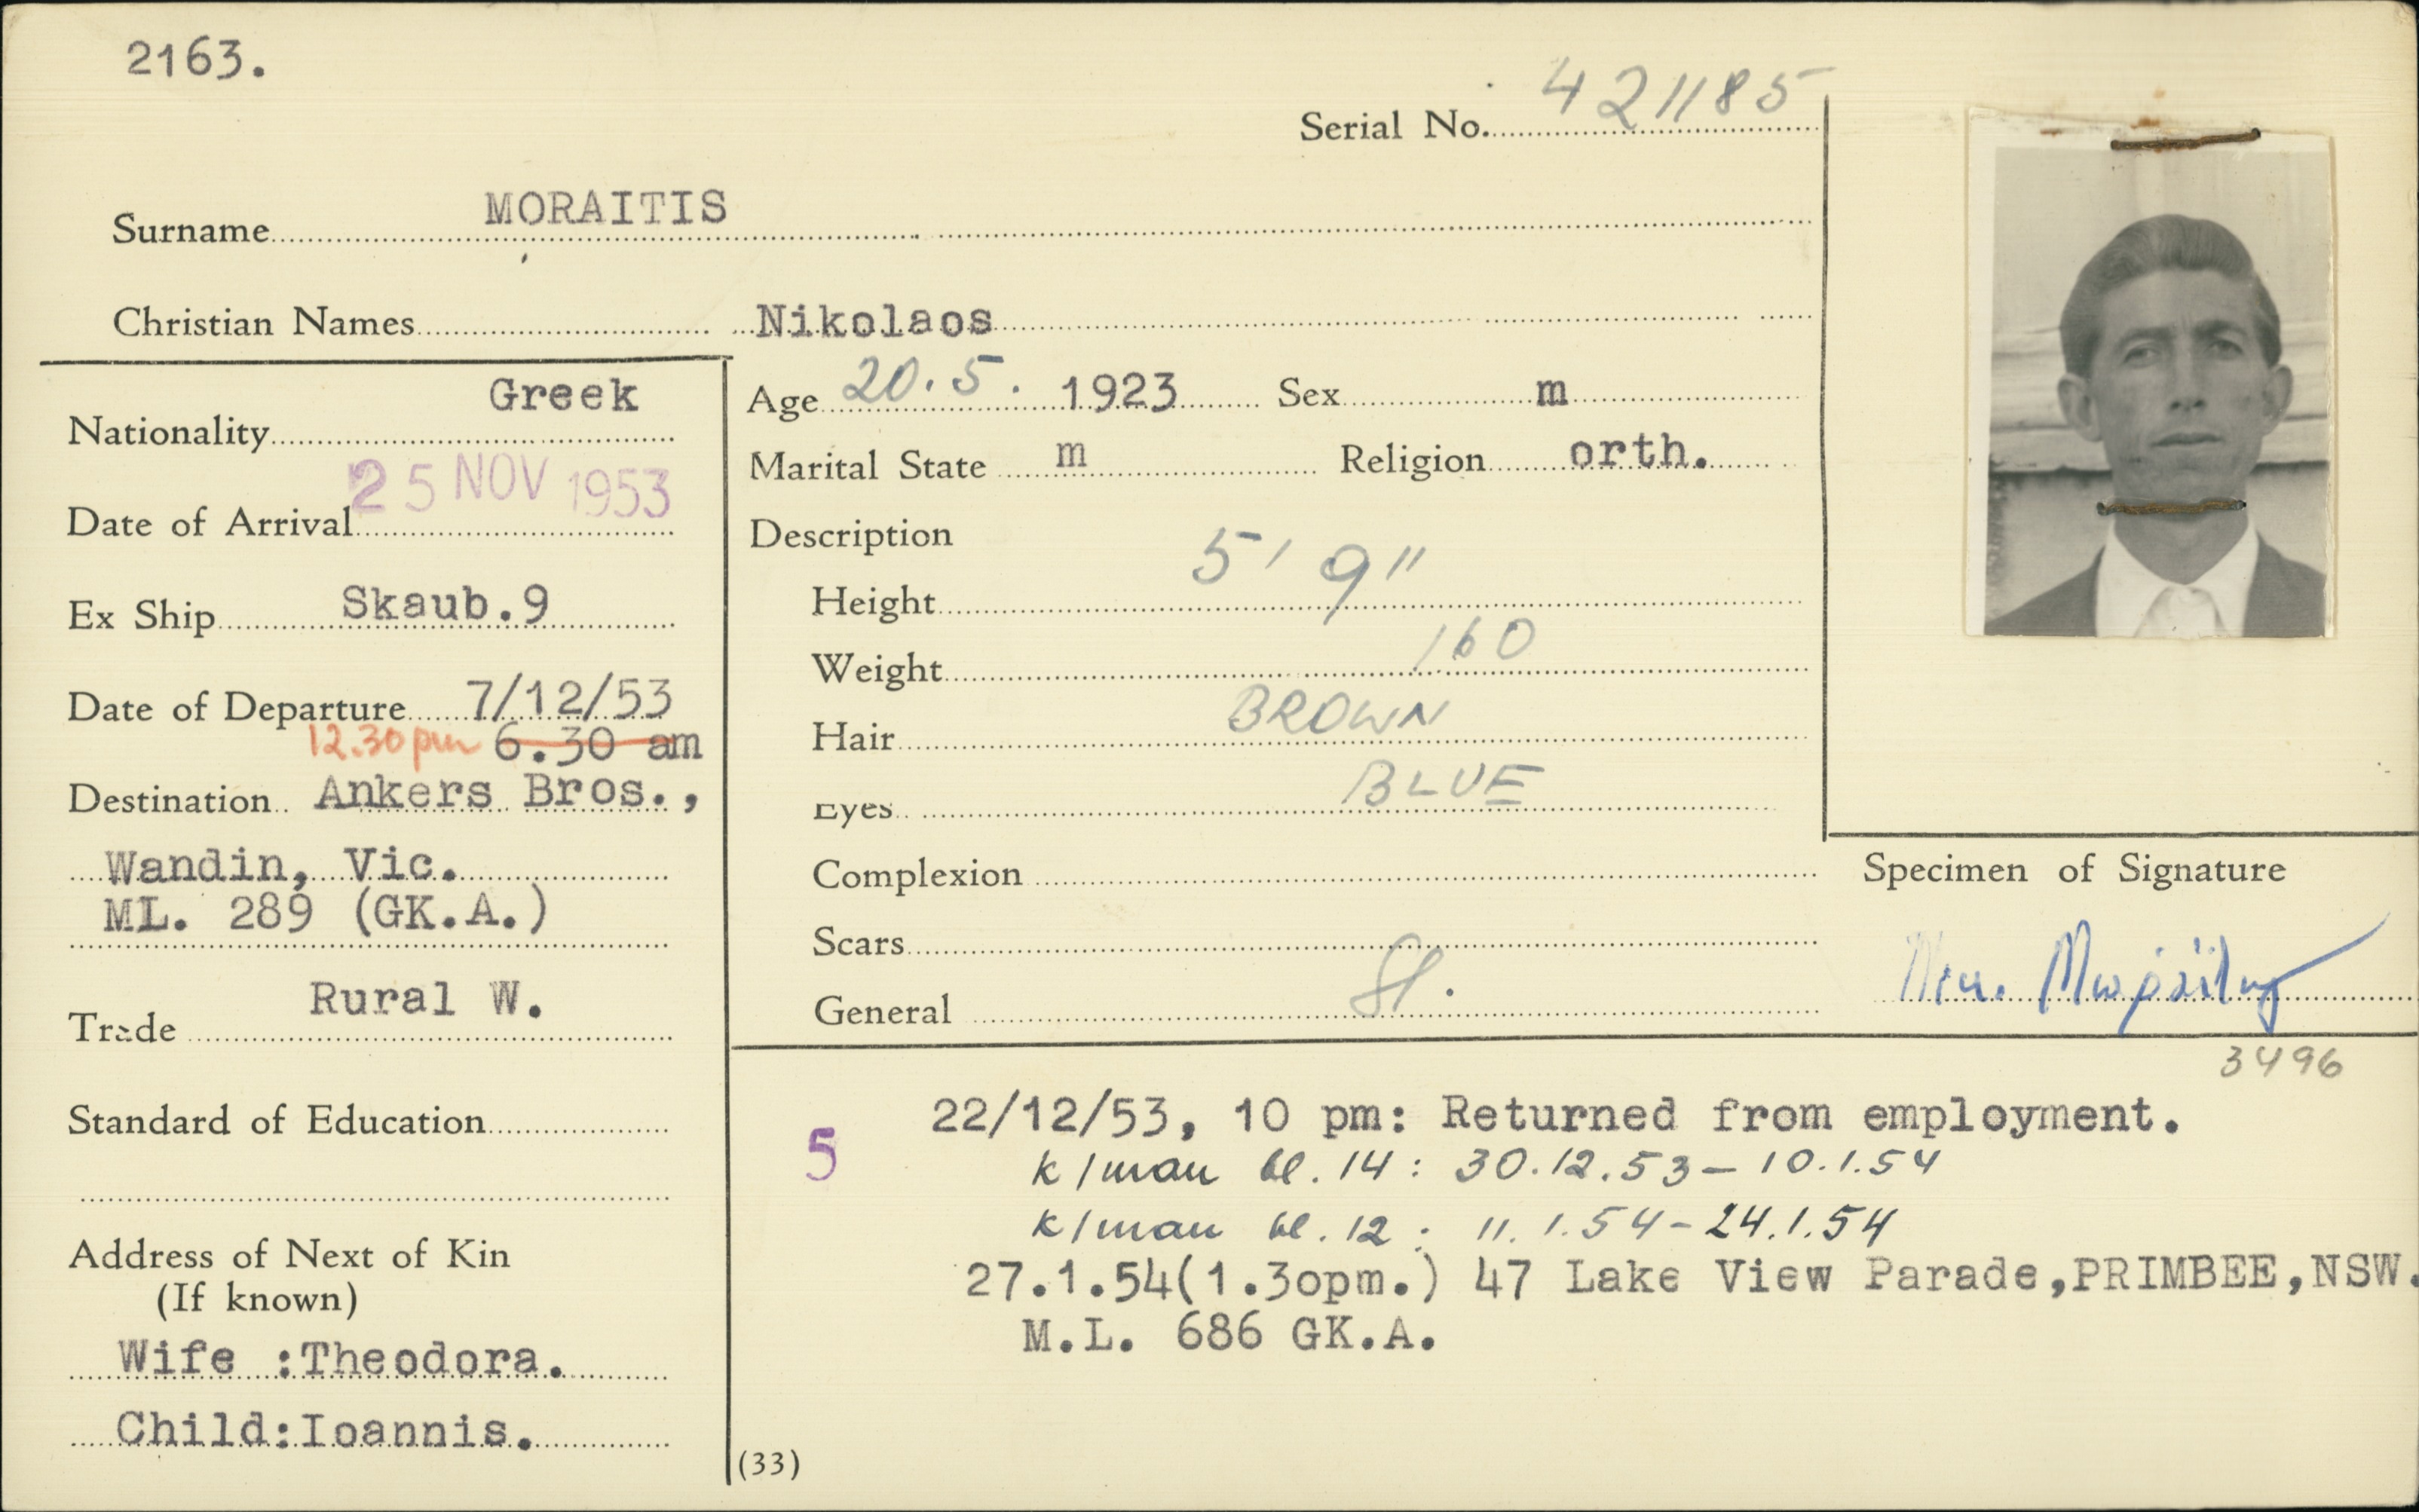 2163.
Serial No. 421185
Surname MORAITIS
Christian Names Nikolaos
Nationality Greek
Date of Arrival 25 NOV 1953
Ex Ship Skaub.9
Date of Departure 7/12/53
12.30pm 6.30 am
Destination Ankers Bros.,
Wandin, Vic.
ML. 289 (GK.A.)
Trade Rural W.
Standard of Education
Address of Next of Kin
(If known)
Wife :Theodora.
Child:Ioannis.
Age 20.5. 1923 Sex m
Marital State m Religion orth.
Description
Height 5' 9"
Weight 160
Hair BROWN
Eyes BLUE
Complexion
Scars
General
Specimen of Signature
Νικ. Μωραΐτης
3496
5
22/12/53, 10 pm: Returned from employment.
k/man bl. 14: 30.12.53 – 10.1.54
k/man bl. 12: 11.1.54 – 24.1.54
27.1.54(1.3opm.) 47 Lake View Parade,PRIMBEE,NSW.
M.L. 686 GK.A.
(33)